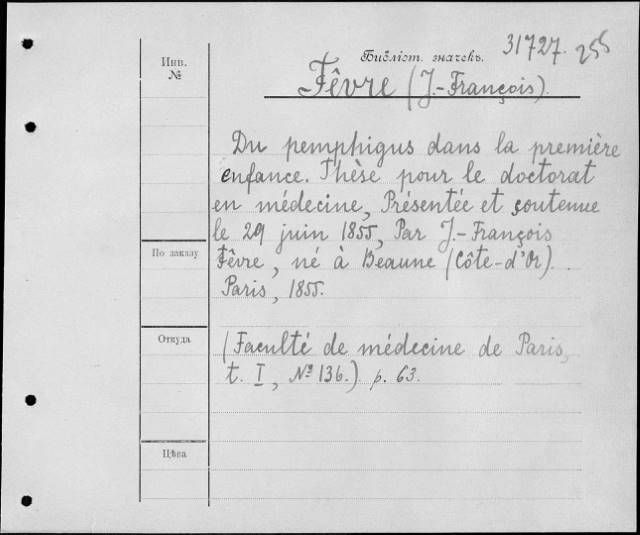 Инв.
№
Библіот. значекъ. 31727. 255
Fêvre (J.-François).
Du pemphigus dans la première
enfance. Thèse pour le doctorat
en médecine, Présentée et soutenue
le 29 juin 1855, Par J.-François
По заказу
Fêvre, né à Beaune (Côte-d'Or).
Paris, 1855.
Откуда
(Faculté de médecine de Paris,
t. I, № 136.) p. 63.
Цѣна